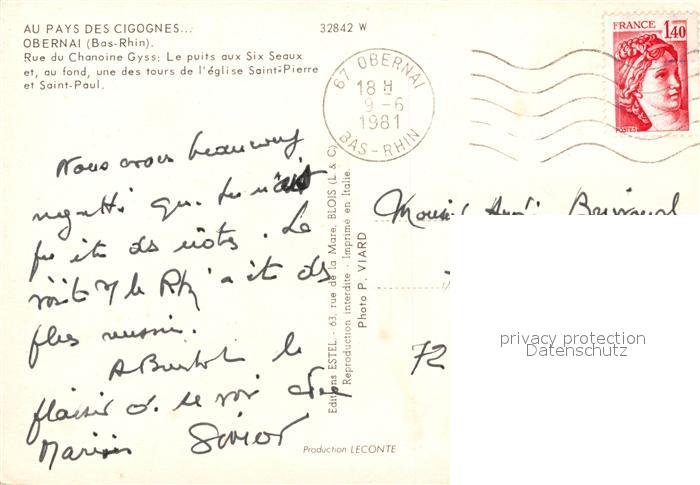 AU PAYS DES CIGOGNES...
OBERNAI (Bas-Rhin).
Rue du Chanoine Gyss: Le puits aux Six Seaux
et, au fond, une des tours de l'église Saint-Pierre
et Saint-Paul.
32842 W
67 OBERNAI
18 H
9-6
1981
BAS-RHIN
FRANCE
1,40
POSTES
Nous avons beaucoup
regretté que tu n'aies
pu être des nôtres. La
visite du a été des
plus réussie.
A Bientôt le
plaisir de te voir
Editions ESTEL - 63, rue de la Mare, BLOIS (L & C)
Reproduction interdite - Imprimé en Italie.
Photo P. VIARD
72
privacy protection
Datenschutz
Production LECONTE